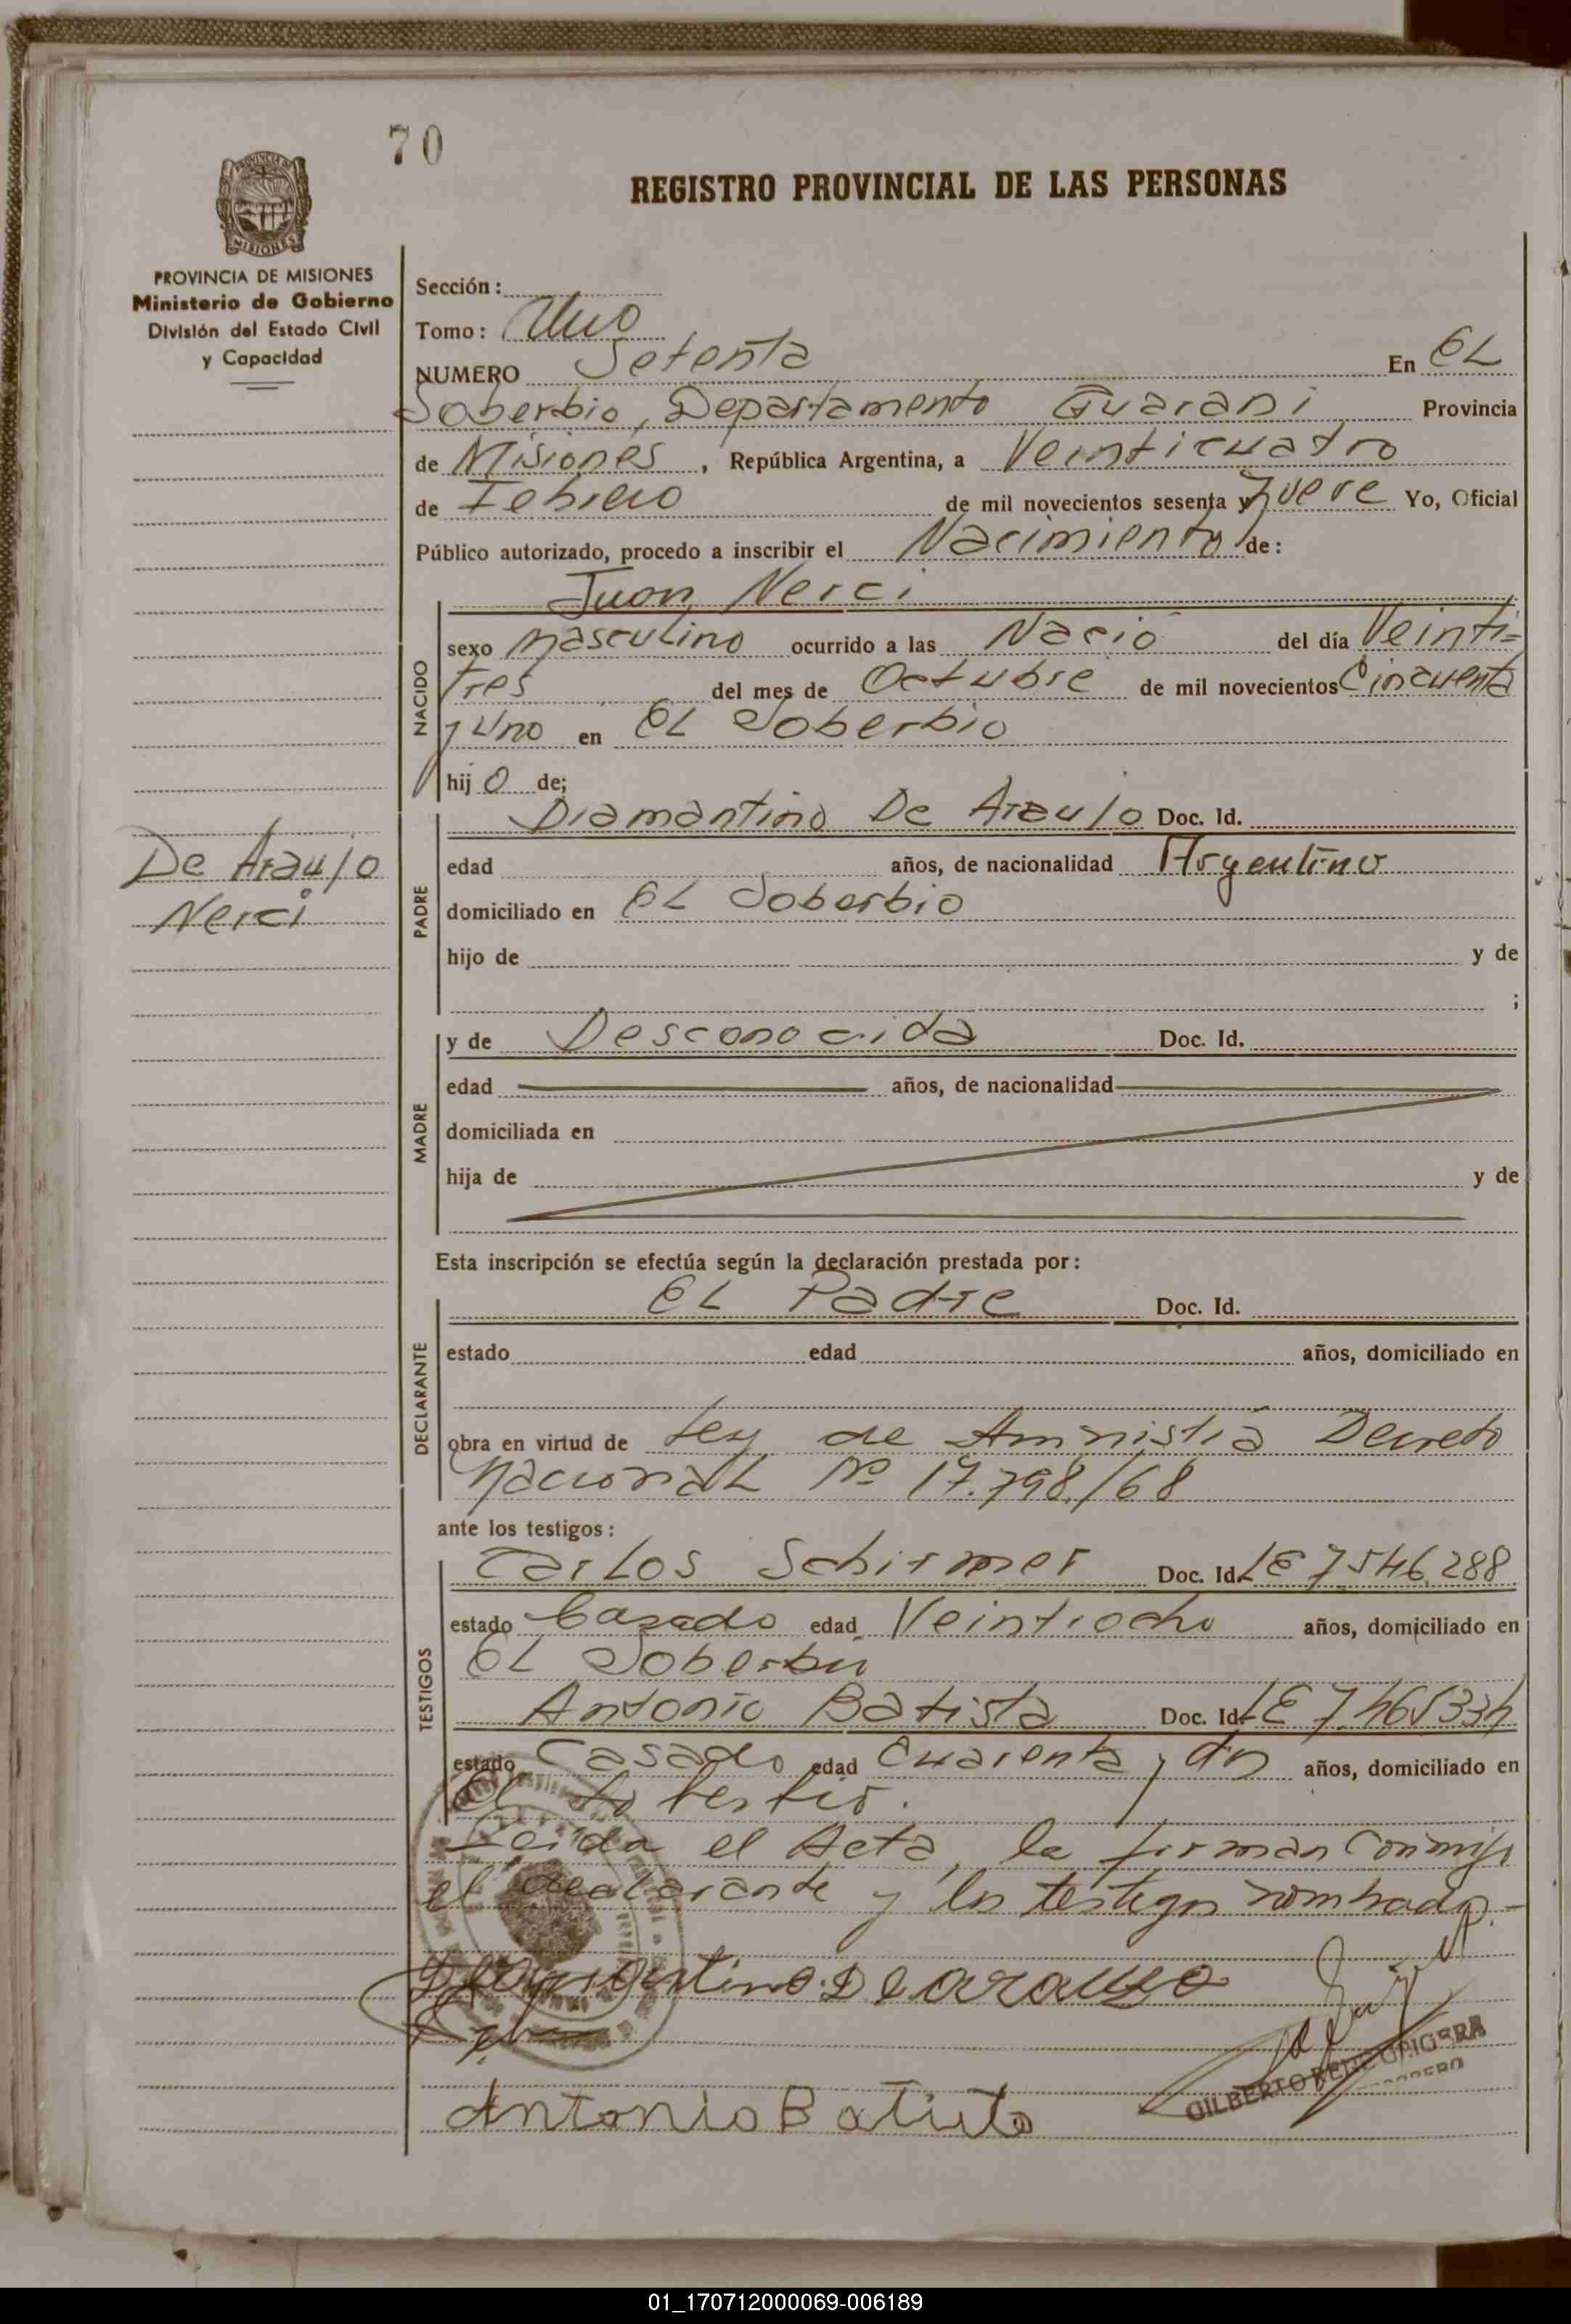 70
REGISTRO PROVINCIAL DE LAS PERSONAS
PROVINCIA DE MISIONES
Ministerio de Gobierno
División del Estado Civil
y Capacidad
Sección:
Tomo: Uno
NUMERO Setenta En EL
Soberbio, Departamento Guarani Provincia
de Misiones, República Argentina, a Veinticuatro
de Febrero de mil novecientos sesenta y Nueve Yo, Oficial
Público autorizado, procedo a inscribir el Nacimiento de:
Juan Nerci
NACIDO
sexo masculino ocurrido a las Nació del día Veinti=
tres del mes de Octubre de mil novecientos Cincuenta
y Uno en EL Soberbio
hijo de;
De Araujo
Nerci
PADRE
Diamantino De Araujo Doc. Id.
edad años, de nacionalidad Argentino
domiciliado en EL Soberbio
hijo de y de
;
MADRE
y de Desconocida Doc. Id.
edad años, de nacionalidad
domiciliada en
hija de y de
Esta inscripción se efectúa según la declaración prestada por:
DECLARANTE
EL Padre Doc. Id.
estado edad años, domiciliado en
obra en virtud de Ley de Amnistia Decreto
Nacional Nº 17.798/68
ante los testigos:
TESTIGOS
Carlos Schirmer Doc. Id. LE 7.546.288
estado Casado edad Veintiocho años, domiciliado en
EL Soberbio
Antonio Batista Doc. Id. LE
estado Casado edad Cuarenta y dos años, domiciliado en
El Soberbio.
Leida el Acta, la firman Conmigo
el declarante y los testigos nombrados.-
Diamantino De araujo
Antonio Batista
GILBERTO
01_170712000069-006189